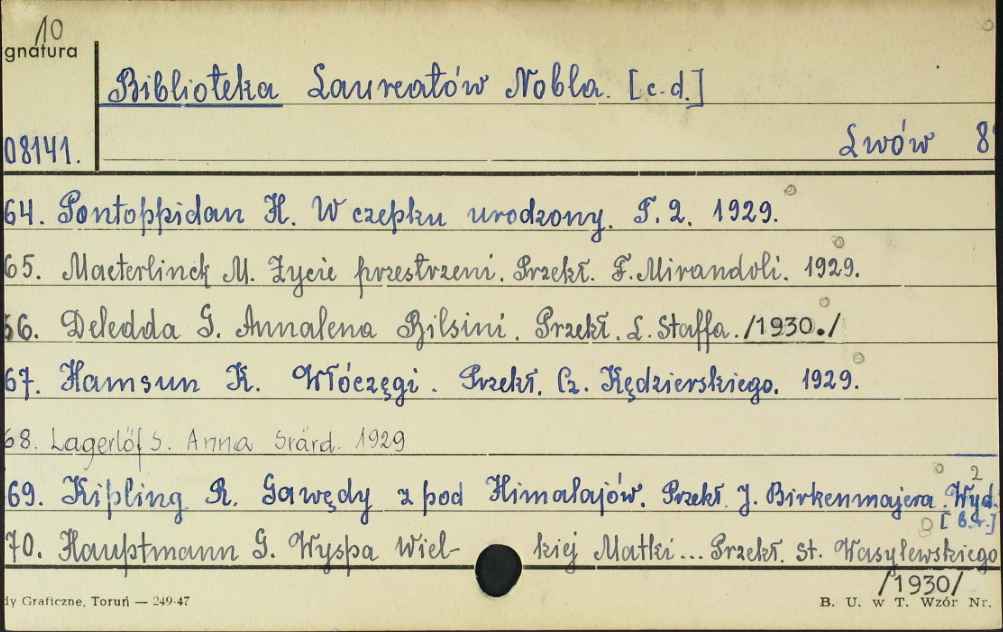 10
gnatura
Biblioteka Laureatów Nobla. [c.d.]
08141.
Lwów 8°
64. Pontoppidan H. W czepku urodzony. T. 2. 1929.
65. Maeterlinck M. Życie przestrzeni. Przekł. F. Mirandoli. 1929.
66. Deledda G. Annalena Bilsini. Przekł. L. Staffa. /1930./
67. Hamsun K. Włóczęgi. Przekł. Cz. Kędzierskiego. 1929.
68. Lagerlöf S. Anna Svärd. 1929
69. Kipling R. Gawędy z pod Himalajów. Przekł J. Birkenmajera. Wyd. 2
[b.r.]
70. Hauptmann G. Wyspa Wiel- kiej Matki... Przekł. St. Wasylewskiego
/1930/
dy Graficzne, Toruń — 249-47
B. U. w T. Wzór Nr.